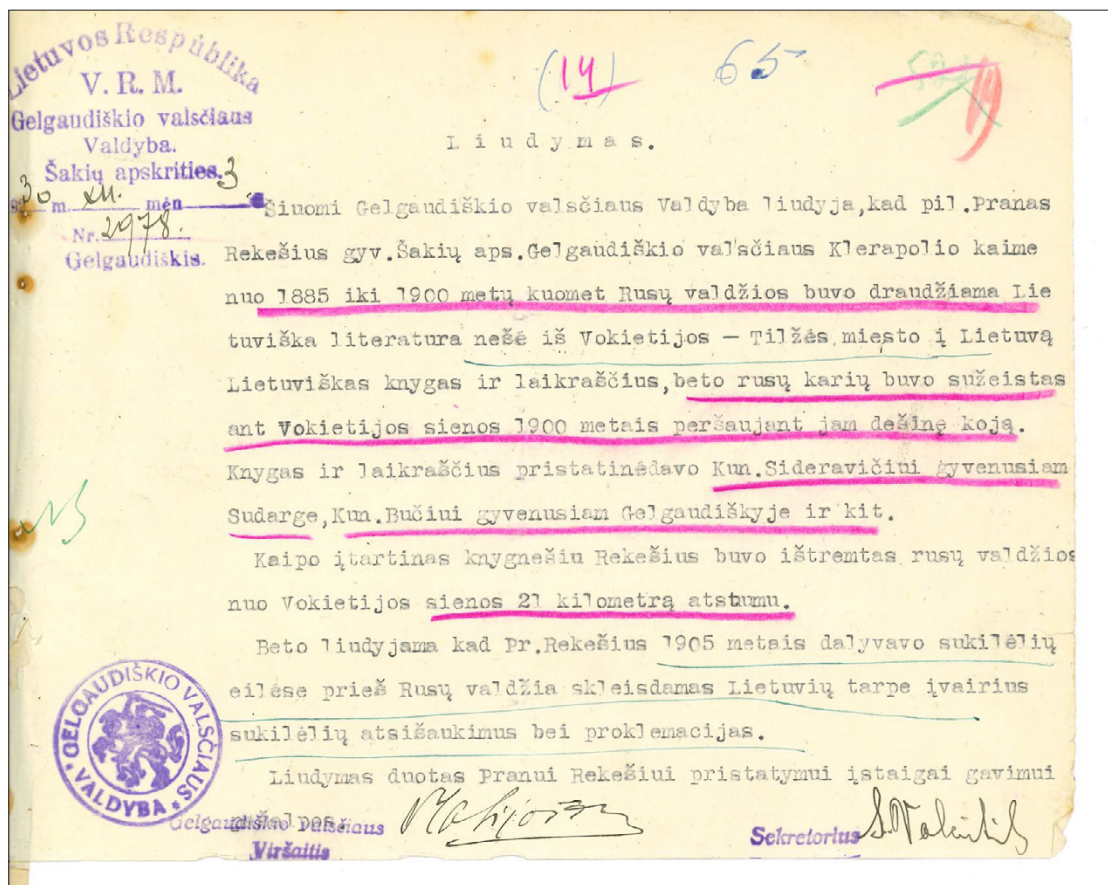 Lietuvos Respublika
V. R. M.
Gelgaudiškio valsčiaus
Valdyba.
Šakių apskrities.
30 m. XII. mėn 3
Nr. 2978.
Gelgaudiškis.
(14)
65
L i u d y m a s .
Šiuomi Gelgaudiškio valsčiaus Valdyba liudyja,kad pil.Pranas
Rekešius gyv.Šakių aps.Gelgaudiškio valsčiaus Klerapolio kaime
nuo 1885 iki 1900 metų kuomet Rusų valdžios buvo draudžiama Lie
tuviška literatura nešė iš Vokietijos — Tilžės miesto į Lietuvą
Lietuviškas knygas ir laikraščius,beto rusų karių buvo sužeistas
ant Vokietijos sienos 1900 metais peršaujant jam dešinę koją.
Knygas ir laikraščius pristatinėdavo Kun.Sideravičiui gyvenusiam
Sudarge,Kun.Bučiui gyvenusiam Gelgaudiškyje ir kit.
Kaipo įtartinas knygnešiu Rekešius buvo ištremtas rusų valdžios
nuo Vokietijos sienos 21 kilometrą atstumu.
Beto liudyjama kad Pr.Rekešius 1905 metais dalyvavo sukilėlių
eilėse prieš Rusų valdžia skleisdamas Lietuvių tarpe įvairius
sukilėlių atsišaukimus bei proklemacijas.
Liudymas duotas Pranui Rekešiui pristatymui įstaigai gavimui
pašalpos.
Gelgaudiškio valsčiaus
Viršaitis
Sekretorius
GELGAUDIŠKIO VALSČIAUS
VALDYBA